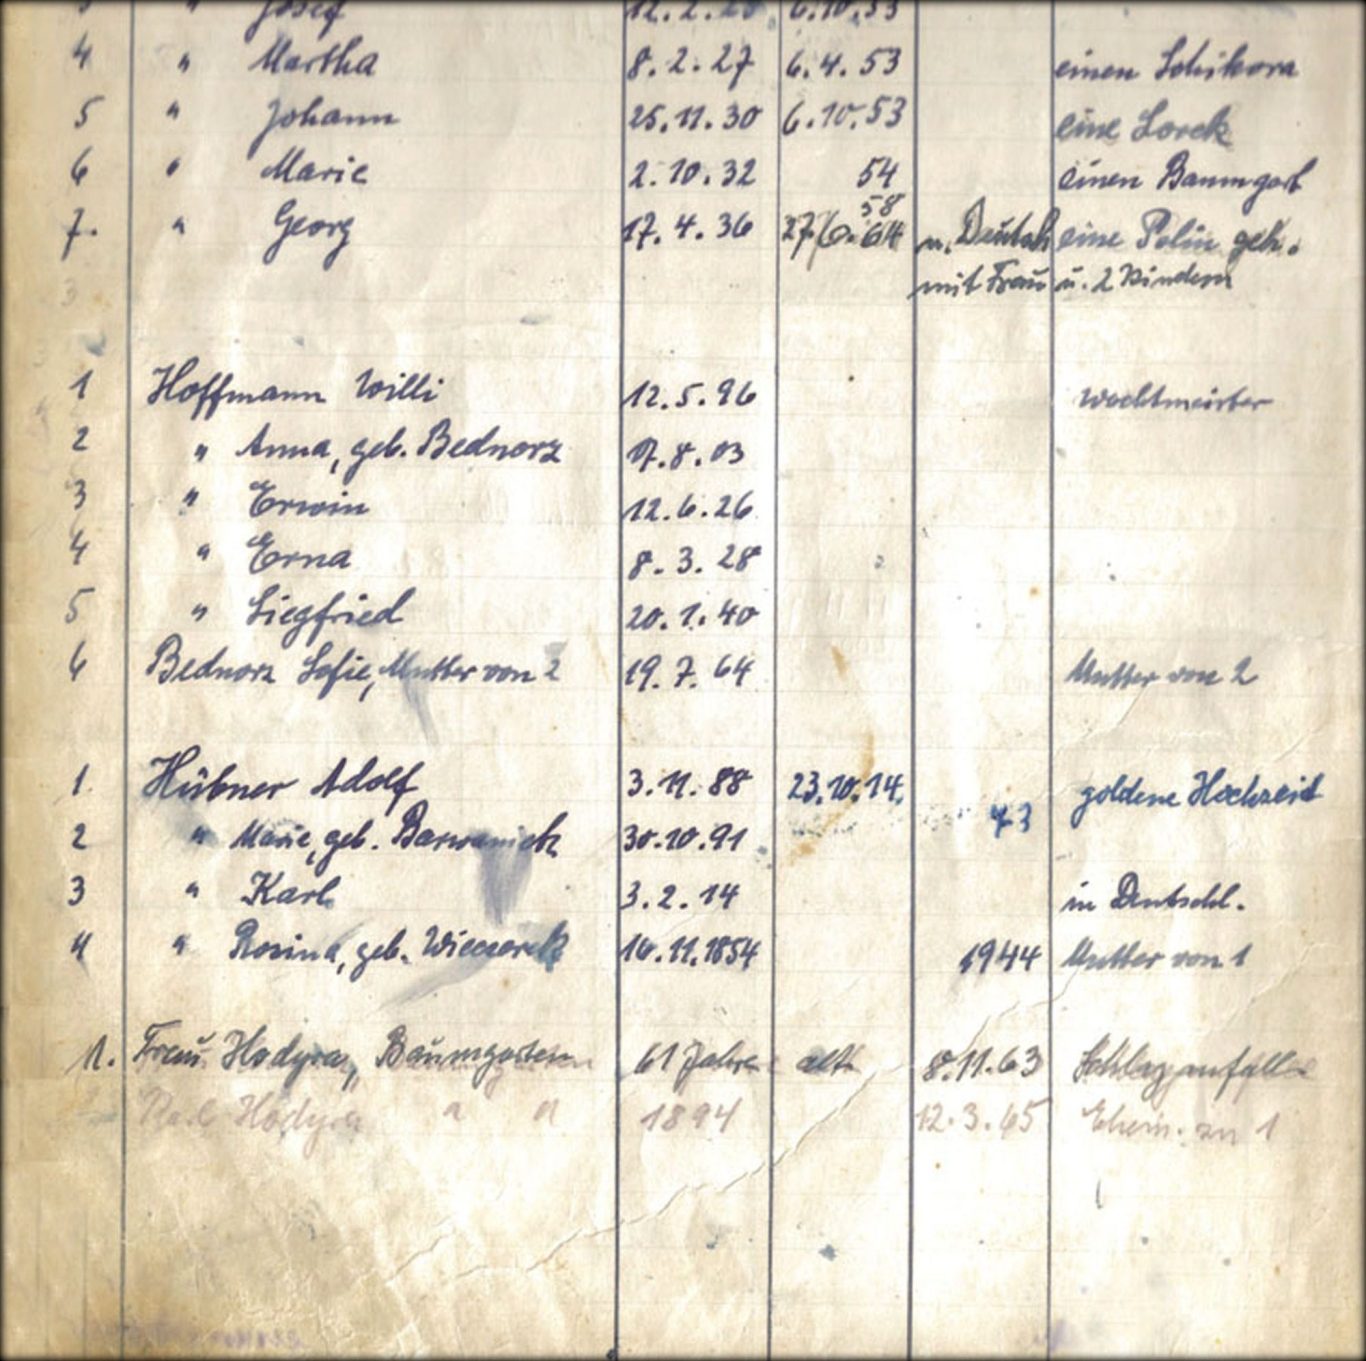 " Josef 12.2. 6.10.53
4 " Martha 8.2.27 6.4.53 einen Schikora
5 " Johann 25.11.30 6.10.53 eine Lorek
6 " Marie 2.10.32 54 einen Baumgart
58
7. " Georg 17.4.36 27/6.64 n. Deutsch eine Polin geh.
3 mit Frau u. 2 Kindern
1 Hoffmann Willi 12.5.96 Wachtmeister
2 " Anna, geb. Bednorz 17.8.03
3 " Erwin 12.6.26
4 " Erna 8.3.28
5 " Siegfried 20.1.40
6 Bednorz Sofie, Mutter von 2 19.7.64 Mutter von 2
1. Hübner Adolf 3.11.88 23.10.14. goldene Hochzeit
73
2 " Marie, geb. 30.10.91
3 " Karl 3.2.14 in Deutschl.
4 " Rosina, geb. 16.11.1854 1944 Mutter von 1
1. Frau Hadyra, Baumgarten 61 Jahre alt 8.11.63 Schlaganfall
Hadyra " " 1894 12.3.65 Ehem. zu 1